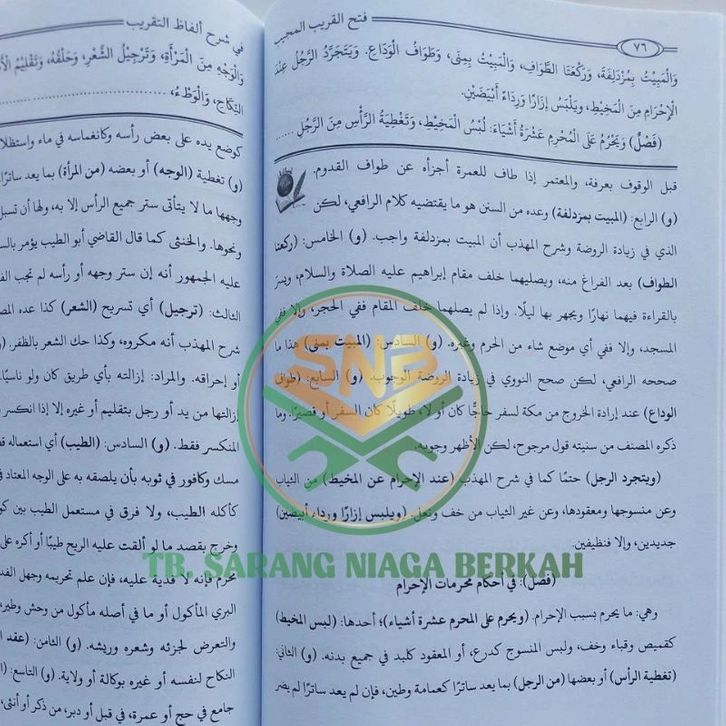 ٧٦
فتح القريب المجيب
وَالْمَبِيْتُ بِمُزْدَلِفَةَ، وَرَكْعَتَا الطَّوَافِ، وَالْمَبِيْتُ بِمِنَى، وَطَوَافُ الْوَدَاعِ. وَيَتَجَرَّدُ الرَّجُلُ عِنْدَ
الْإِحْرَامِ مِنَ الْمَخِيْطِ، وَيَلْبَسُ إِزَارًا وَرِدَاءً أَبْيَضَيْنِ.
(فَصْلٌ) وَيَحْرُمُ عَلَى الْمُحْرِمِ عَشْرَةُ أَشْيَاءَ: لُبْسُ الْمَخِيْطِ، وَتَغْطِيَةُ الرَّأْسِ مِنَ الرَّجُلِ ......
قبل الوقوف بعرفة، والمعتمر إذا طاف للعمرة أجزأه عن طواف القدوم.
(و) الرابع: (المبيت بمزدلفة) وعده من السنن هو ما يقتضيه كلام الرافعي، لكن
الذي في زيادة الروضة وشرح المهذب أن المبيت بمزدلفة واجب. (و) الخامس: (ركعتا
الطواف) بعد الفراغ منه، ويصليهما خلف مقام إبراهيم عليه الصلاة والسلام، ويسر
بالقراءة فيهما نهارًا ويجهر بها ليلًا. وإذا لم يصلهما خلف المقام ففي الحجر، وإلا ففي
المسجد، وإلا ففي أي موضع شاء من الحرم وغيره. (و) السادس: (المبيت بمنى) هذا ما
صححه الرافعي، لكن صحح النووي في زيادة الروضة الوجوب. (و) السابع: (طواف
الوداع) عند إرادة الخروج من مكة لسفر حاجًّا كان أو لا، طويلًا كان السفر أو قصيرًا. وما
ذكره المصنف من سنيته قول مرجوح، لكن الأظهر وجوبه.
(ويتجرد الرجل) حتمًا كما في شرح المهذب (عند الإحرام عن المخيط) من الثياب
وعن منسوجها ومعقودها، وعن غير الثياب من خف ونعل. (ويلبس إزارًا ورداء أبيضين)
جديدين، وإلا فنظيفين.
(فصل): في أحكام محرمات الإحرام
وهي: ما يحرم بسبب الإحرام. (ويحرم على المحرم عشرة أشياء)؛ أحدها: (لبس المخيط)
كقميص وقباء وخف، ولبس المنسوج كدرع، أو المعقود كلبد في جميع بدنه. (و) الثاني:
(تغطية الرأس) أو بعضها (من الرجل) بما يعد ساترًا كعمامة وطين، فإن لم يعد ساترًا لم يضر
في شرح ألفاظ التقريب
وَالْوَجْهِ مِنَ الْمَرْأَةِ، وَتَرْجِيْلُ الشَّعْرِ، وَحَلْقُهُ، وَتَقْلِيْمُ
النِّكَاحِ، وَالْوَطْءُ،
كوضع يده على بعض رأسه وكانغماسه في ماء واستظلا
(و) تغطية (الوجه) أو بعضه (من المرأة) بما يعد ساترًا
وجهها ما لا يتأتى ستر جميع الرأس إلا به، ولها أن تسبل
ونحوها. والخنثى كما قال القاضي أبو الطيب يؤمر بالس
عليه الجمهور أنه إن ستر وجهه أو رأسه لم تجب الف
الثالث: (ترجيل) أي تسريح (الشعر) كذا عده المص
شرح المهذب أنه مكروه، وكذا حك الشعر بالظفر. (و
أو إحراقه. والمراد: إزالته بأي طريق كان ولو ناسيًا
إزالتها من يد أو رجل بتقليم أو غيره إلا إذا انكسر
المنكسر فقط. (و) السادس: (الطيب) أي استعماله ق
مسك وكافور في ثوبه بأن يلصقه به على الوجه المعتاد ف
كأكله الطيب، ولا فرق في مستعمل الطيب بين كو
وخرج بقصد ما لو ألقت عليه الريح طيبًا أو أكره على
محرم فإنه لا فدية عليه، فإن علم تحريمه وجهل الفد
البري المأكول أو ما في أصله مأكول من وحش وطير،
والتعرض لجزئه وشعره وريشه. (و) الثامن: (عقد
النكاح لنفسه أو غيره بوكالة أو ولاية. (و) التاسع:
جامع في حج أو عمرة، في قبل أو دبر، من ذكر أو أنثى،
SNB
TB. SARANG NIAGA BERKAH